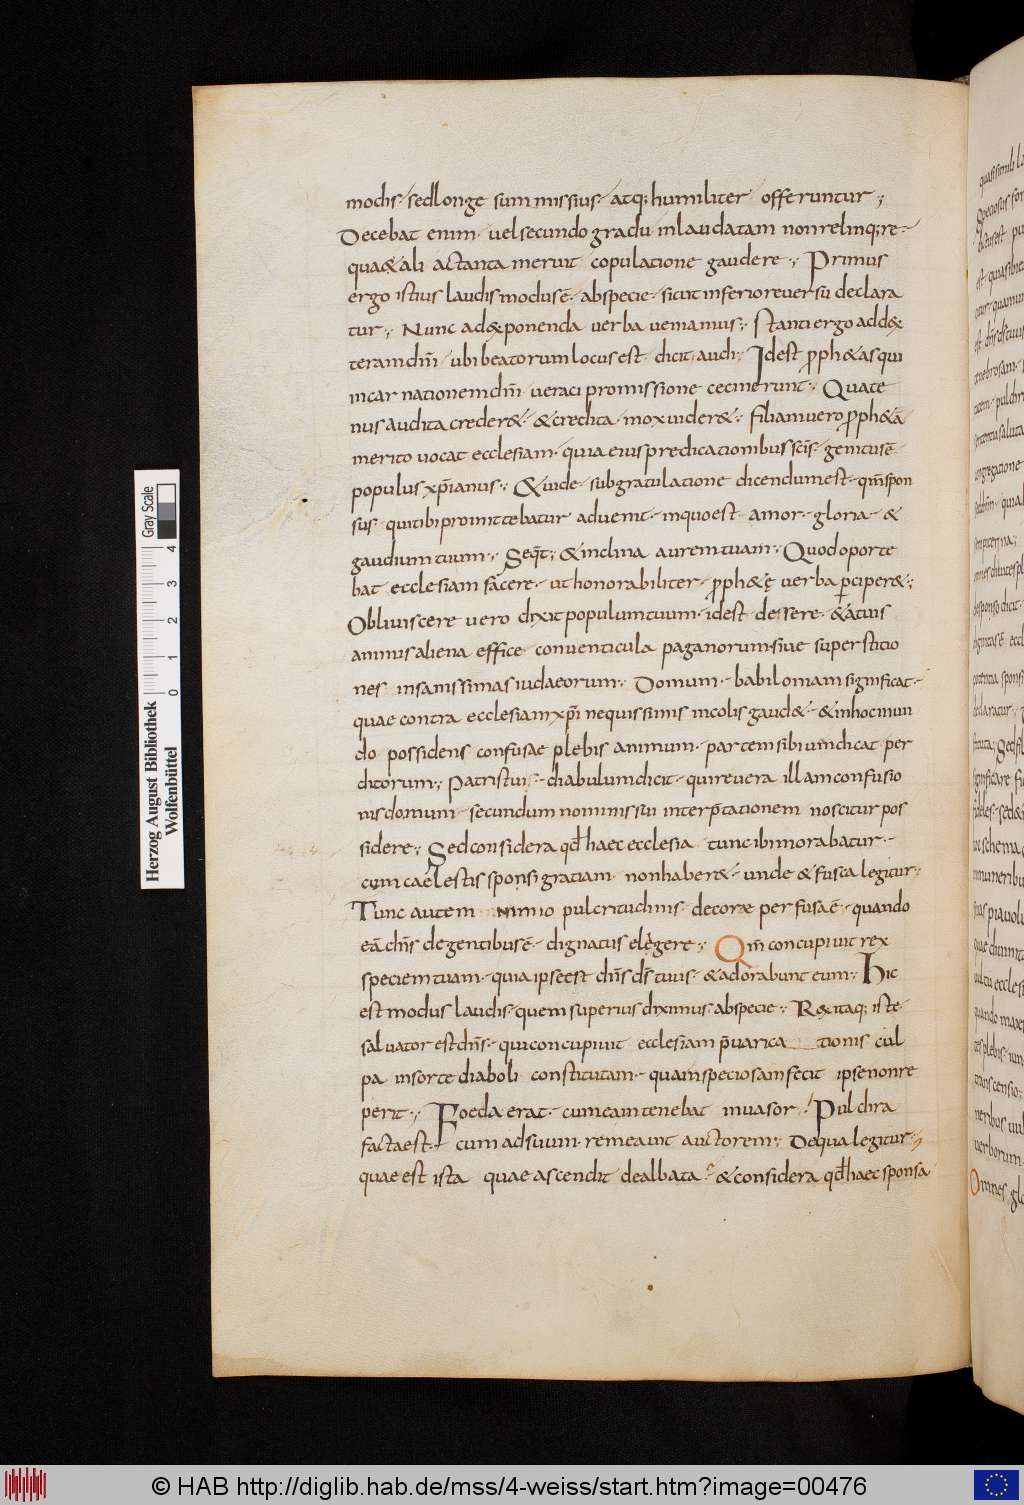 modis· sed longe summissius· atq; humiliter offeruntur;
Decebat enim· vel secundo gradu inlaudatam non relinq;re·
qua&ali actanta meruit copulatione gaudere; Primus
ergo istius laudis modus ē· abspecie· sicut inferiore versu declara
tur; Nunc ad exponenda verba veniamus; Stanti ergo add&
teram dn̄i ubi beatorum locus est· dicit audi; Id est pph&as qui
incarnationem dn̄i veraci promissione cecinerunt; Quate
nus audita creder&· & credita· mox vider&; filiam vero pph&ā
merito vocat ecclesiam· quia eius predicationibus scīs· genitus ē
populus xp̄ianus; & vide· sub gratulatione dicendum est· qm̄ spon
sus· qui tibi promittebatur advenit· in quo est amor· gloria· &
gaudium tuum; Seq̄t; & inclina aurem tuam; Quod oporte
bat ecclesiam facere· ut honorabiliter· pph&ę verba p̄ciper&;
Obliviscere vero dixit populum tuum· id est dessere· & a tuis
animus aliena effice conventicula paganorum· sive superstitio
nes insanissimas iudaeorum; Domum· babiloniam significat·
quae contra ecclesiam xp̄i nequissimis incolis gaud&· & in hoc mun
do possidens confusae plebis animum· partem sibi vindicat per
ditorum; Patris tui· diabulum dicit· qui revera illam confusio
nis domum· secundum nominis sui interp̄tationem noscitur pos
sidere; Sed considera qd̄ haec ecclesia tunc ibi morabatur·
cum caelestis sponsi gratiam non haber&· unde & fusca legitur;
Tunc autem nimio pulcritudinis· decorae perfusa ē· quando
eā dn̄s de gentibus ē· dignatus elegere; Qm̄ concupivit rex
speciem tuam· quia ipse est dn̄s ds̄ tuus· & adorabunt eum; Hic
est modus laudis· quem superius diximus· abspecie; R&itaq; iste·
salvator est dn̄s· qui concupivit ecclesiam p̄varicationis cul
pa in sorte diaboli constitutam· quam speciosam fecit ipse non re
perit; Foeda erat· cum eam tenebat invasor! Pulchra
facta est· cum ad suum· remeavit auctorem; De qua legitur·
quae est ista quae ascendit dealbata? & considera qd̄ haec sponsa
Herzog August Bibliothek
Wolfenbüttel
Gray Scale
0 1 2 3 4
© HAB http://diglib.hab.de/mss/4-weiss/start.htm?image=00476